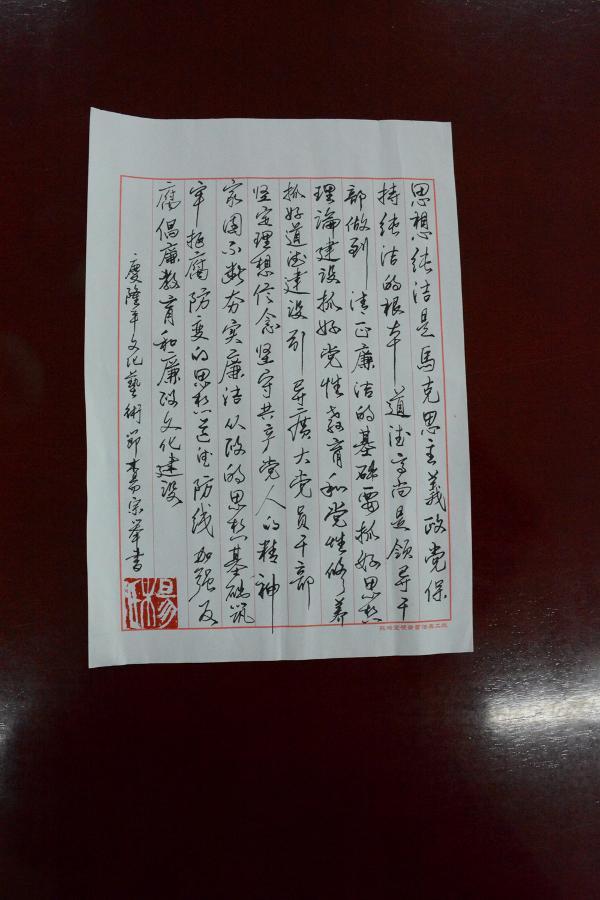 思想純洁是馬克思主義政党保
持純洁的根本 道德高尚是领导干
部做到 清正廉洁的基础要抓好思想
理論建设抓好党性教育和党性修养
抓好道德建设引导廣大党员干部
坚定理想信念坚守共产党人的精神
家園不断夯实廉洁从政的思想基础筑
牢拒腐防变的思想道德防线加强反
腐倡廉教育和廉政文化建设
慶隆平文化藝術節 楊宗举書
楊